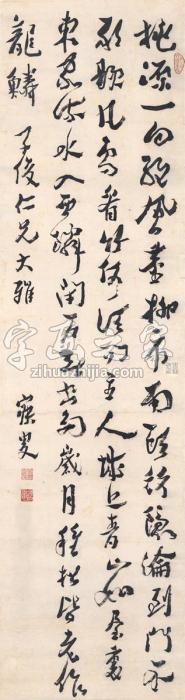 桃源一向絕風塵柳市南頭訪隱淪到門不
敢題凡鳥看竹何須問主人城上青山如屋裏
東家流水入西鄰閉戶著書多歲月種松皆老作
龍鱗 子俊仁兄大雅 寐叟
字画之家
zihuazhijia.com